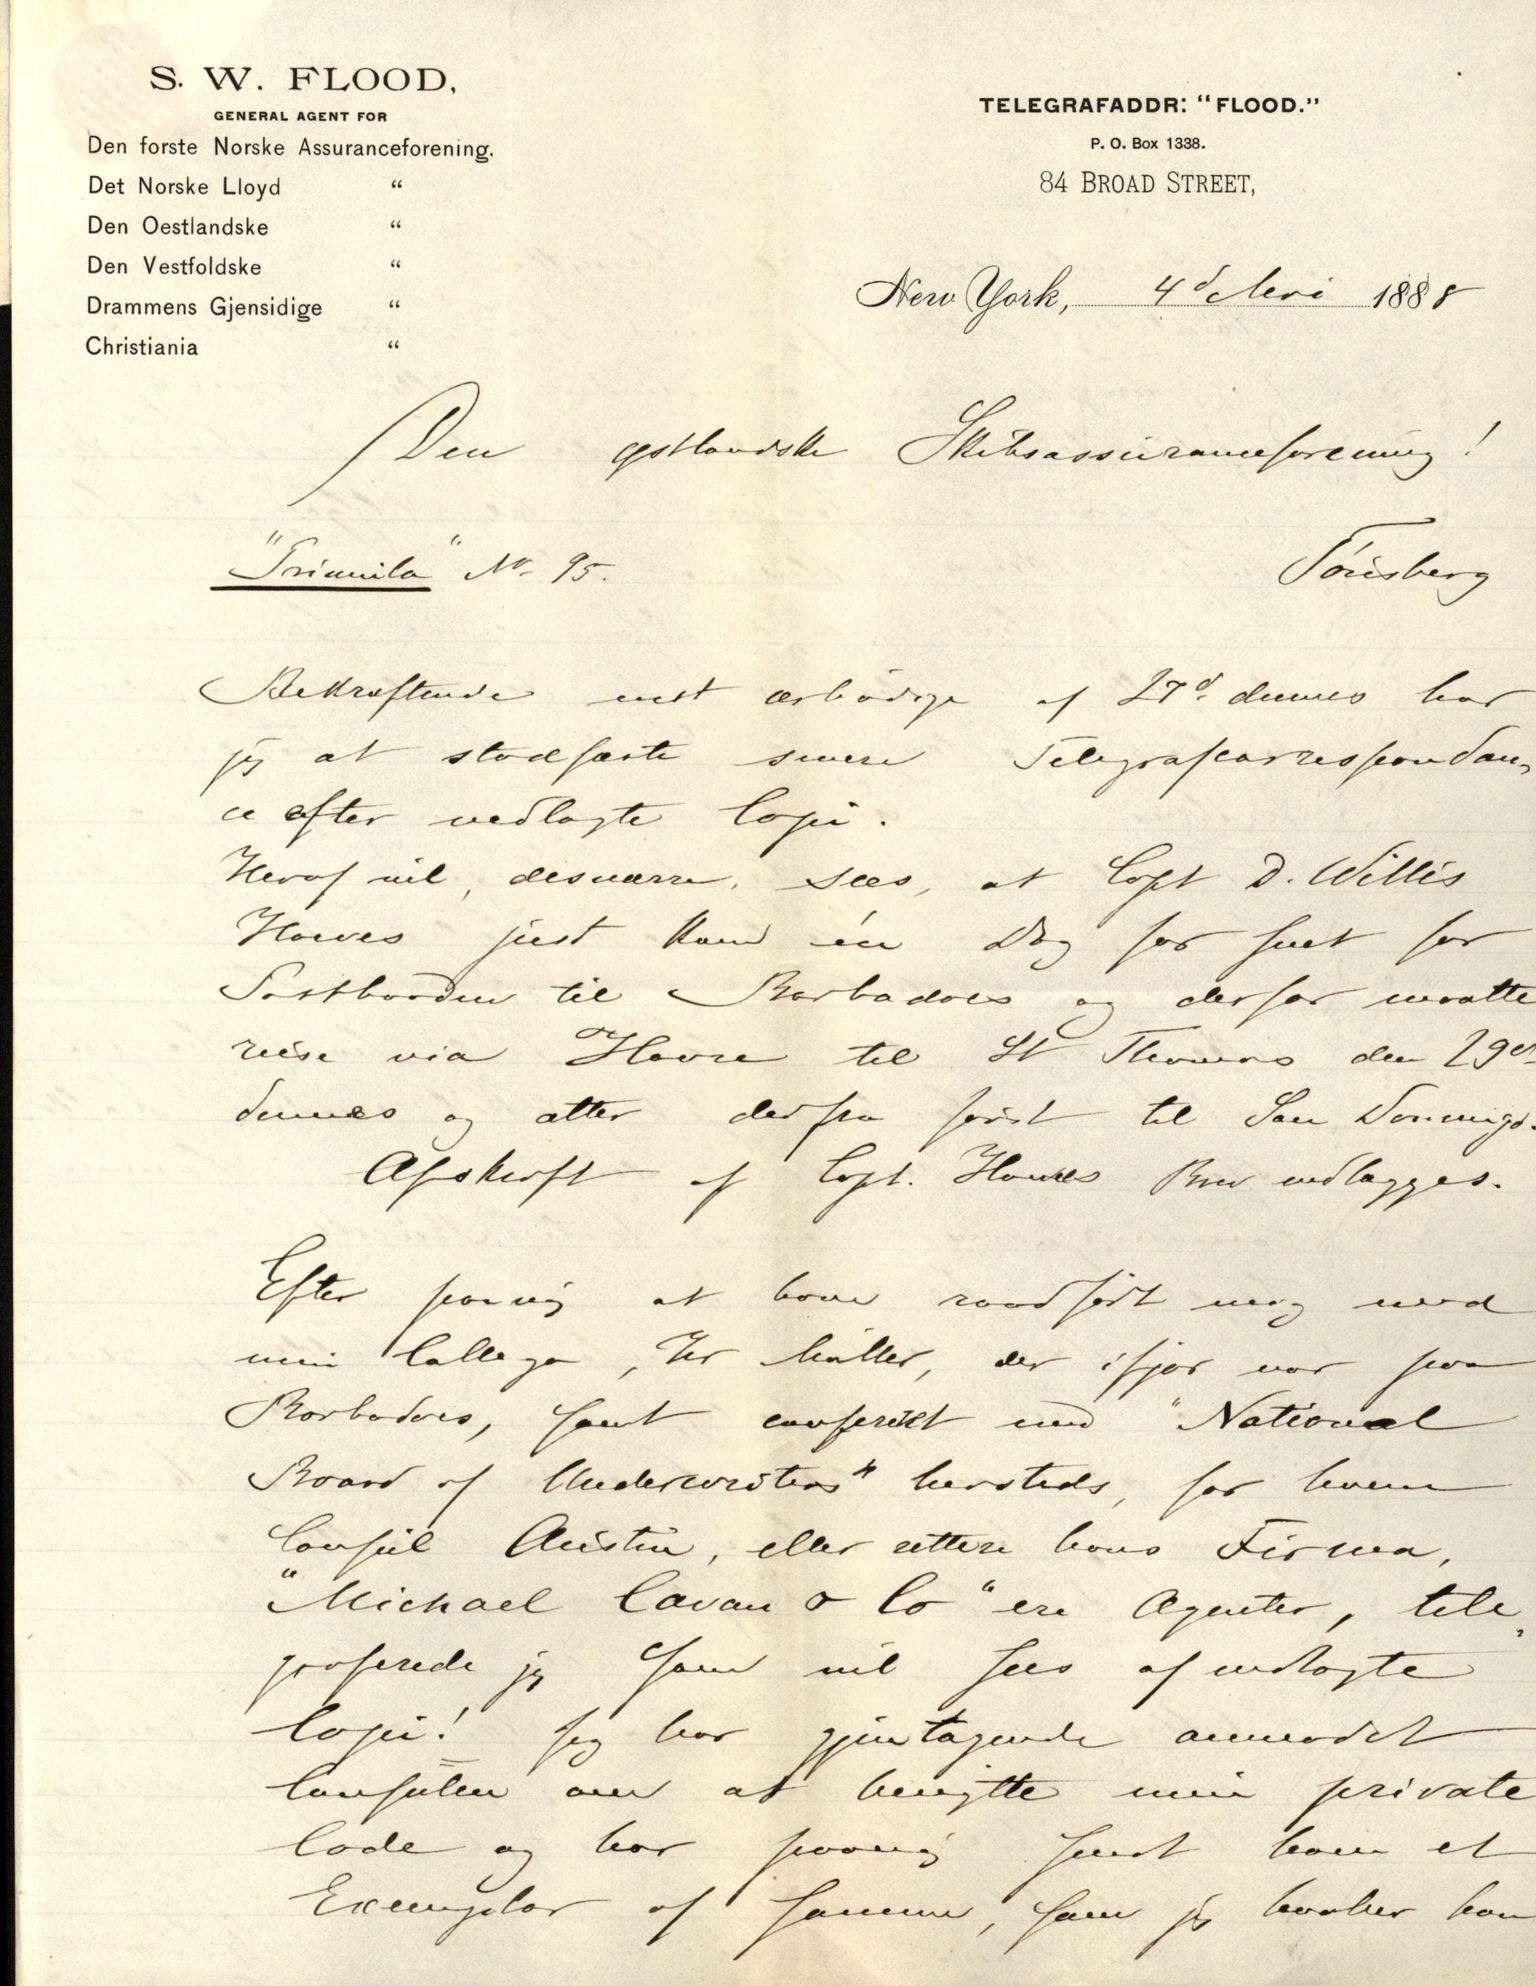 S. W. FLOOD,
GENERAL AGENT FOR
Den forste Norske Assuranceforening.
Det Norske Lloyd “
Den Oestlandske “
Den Vestfoldske “
Drammens Gjensidige “
Christiania “
TELEGRAFADDR: “FLOOD.”
P. O. Box 1338.
84 BROAD STREET,
New York, 4d Mai 1888
Den østlandske Skibsassuranceforening!
"Primula" No. 95.
Tönsberg
Bekræftende mit ærbödige af 27d. dennes har
jeg at stadfæste senere Telegrafcorrespondan-
ce efter vedlagte Copi.
Heraf vil, desværre, sees, at Capt D. Willis
Howes just kom én Dag for sent for
Postbaaden til Barbadoes og derfor maatte
reise via Havre til St Thomas den 29de
dennes og atter derfra först til San Domingo.
Afskrift af Capt. Howes Brev vedlægges.
Efter paany at have raadfört mig med
min Collega, Hr Möller, der ifjor var paa
Barbadoes, samt confereret med "National
Board of Underwriters" hersteds, for hvem
Consul Austin, eller rettere hans Firma,
"Michael Cavan & Co" ere Agenter, tele-
graferede jeg som vil sees af vedlagte
Copi! Jeg har gjentagende anmodet
Consulen om at benytte min private
Code og har paany sendt ham et
Exemplar af samme, som jeg haaber han